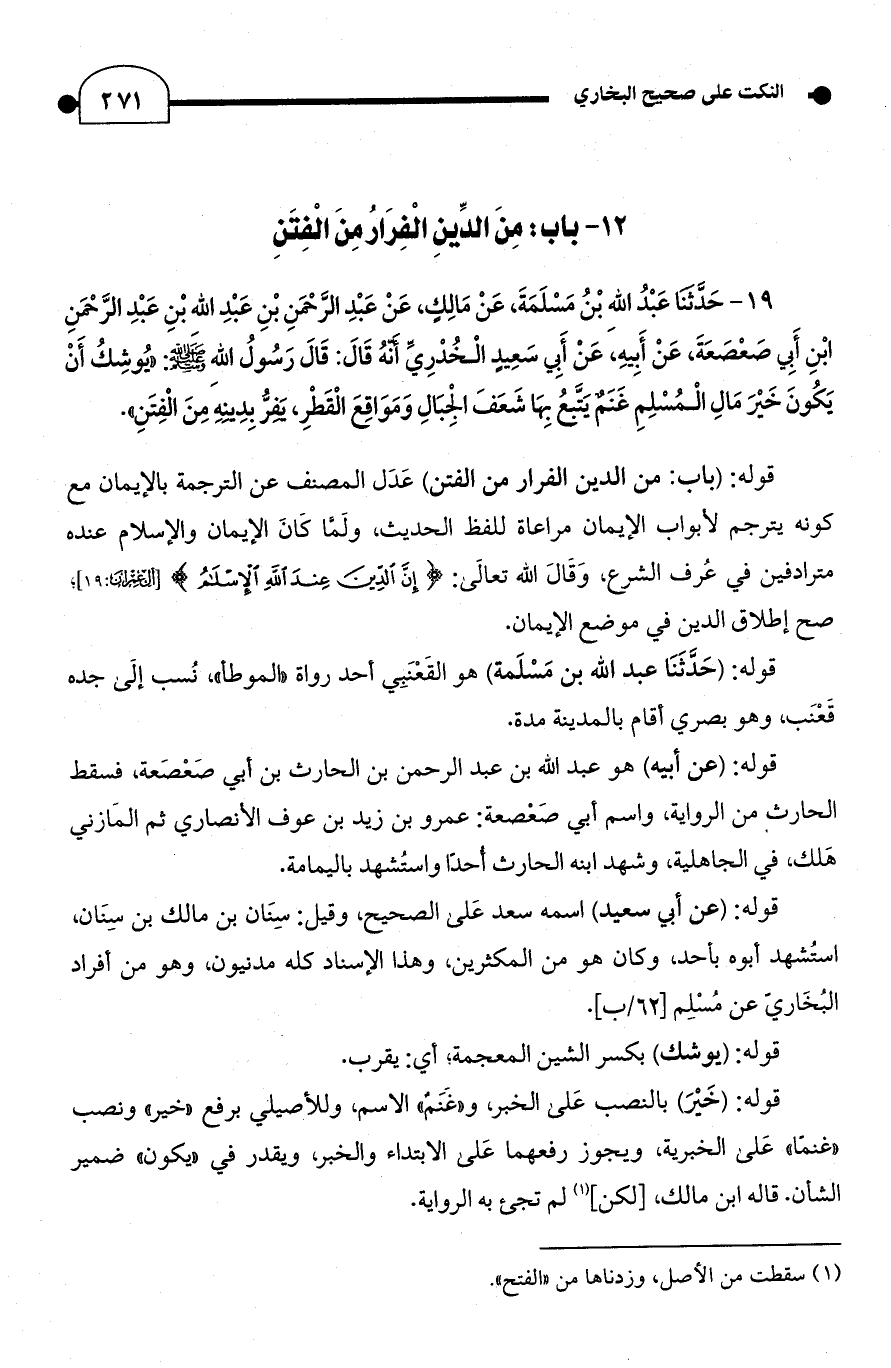 النكت على صحيح البخاري
٢٧١
١٢- باب: مِنَ الدِّينِ الْفِرَارُ مِنَ الْفِتَنِ
١٩- حَدَّثَنَا عَبْدُ اللهِ بْنُ مَسْلَمَةَ، عَنْ مَالِكٍ، عَنْ عَبْدِ الرَّحْمَنِ بْنِ عَبْدِ اللهِ بْنِ عَبْدِ الرَّحْمَنِ
ابْنِ أَبِي صَعْصَعَةَ، عَنْ أَبِيهِ، عَنْ أَبِي سَعِيدٍ الْخُدْرِيِّ أَنَّهُ قَالَ: قَالَ رَسُولُ اللهِ ﷺ: «يُوشِكُ أَنْ
يَكُونَ خَيْرَ مَالِ الْمُسْلِمِ غَنَمٌ يَتَّبِعُ بِهَا شَعَفَ الْجِبَالِ وَمَوَاقِعَ الْقَطْرِ، يَفِرُّ بِدِينِهِ مِنَ الْفِتَنِ».
قوله: (باب: من الدين الفرار من الفتن) عَدَل المصنف عن الترجمة بالإيمان مع
كونه يترجم لأبواب الإيمان مراعاة للفظ الحديث، ولَمَّا كَانَ الإيمان والإسلام عنده
مترادفين في عُرف الشرع، وَقَالَ الله تعالَى: ﴿إِنَّ ٱلدِّينَ عِندَ ٱللَّهِ ٱلْإِسْلَٰمُ﴾ [آل عمران: ١٩]؛
صح إطلاق الدين في موضع الإيمان.
قوله: (حَدَّثَنَا عبد الله بن مَسْلَمة) هو القَعْنَبِي أحد رواة «الموطأ»، نُسب إلَى جده
قَعْنَب، وهو بصري أقام بالمدينة مدة.
قوله: (عن أبيه) هو عبد الله بن عبد الرحمن بن الحارث بن أبي صَعْصَعة، فسقط
الحارث من الرواية، واسم أبي صَعْصعة: عمرو بن زيد بن عوف الأنصاري ثم المَازني
هَلك، في الجاهلية، وشهد ابنه الحارث أُحدًا واستُشهد باليمامة.
قوله: (عن أبي سعيد) اسمه سعد عَلَى الصحيح، وقيل: سِنَان بن مالك بن سِنَان،
استُشهد أبوه بأحد، وكان هو من المكثرين، وهذا الإسناد كله مدنيون، وهو من أفراد
البُخَاريّ عن مُسْلِم [٦٢/ب].
قوله: (يوشك) بكسر الشين المعجمة؛ أي: يقرب.
قوله: (خَيْرَ) بالنصب عَلَى الخبر، و«غَنَمٌ» الاسم، وللأصيلي برفع «خير» ونصب
«غنمًا» عَلَى الخبرية، ويجوز رفعهما عَلَى الابتداء والخبر، ويقدر في «يكون» ضمير
الشأن. قاله ابن مالك، [لكن](١) لم تجئ به الرواية.
(١) سقطت من الأصل، وزدناها من «الفتح».